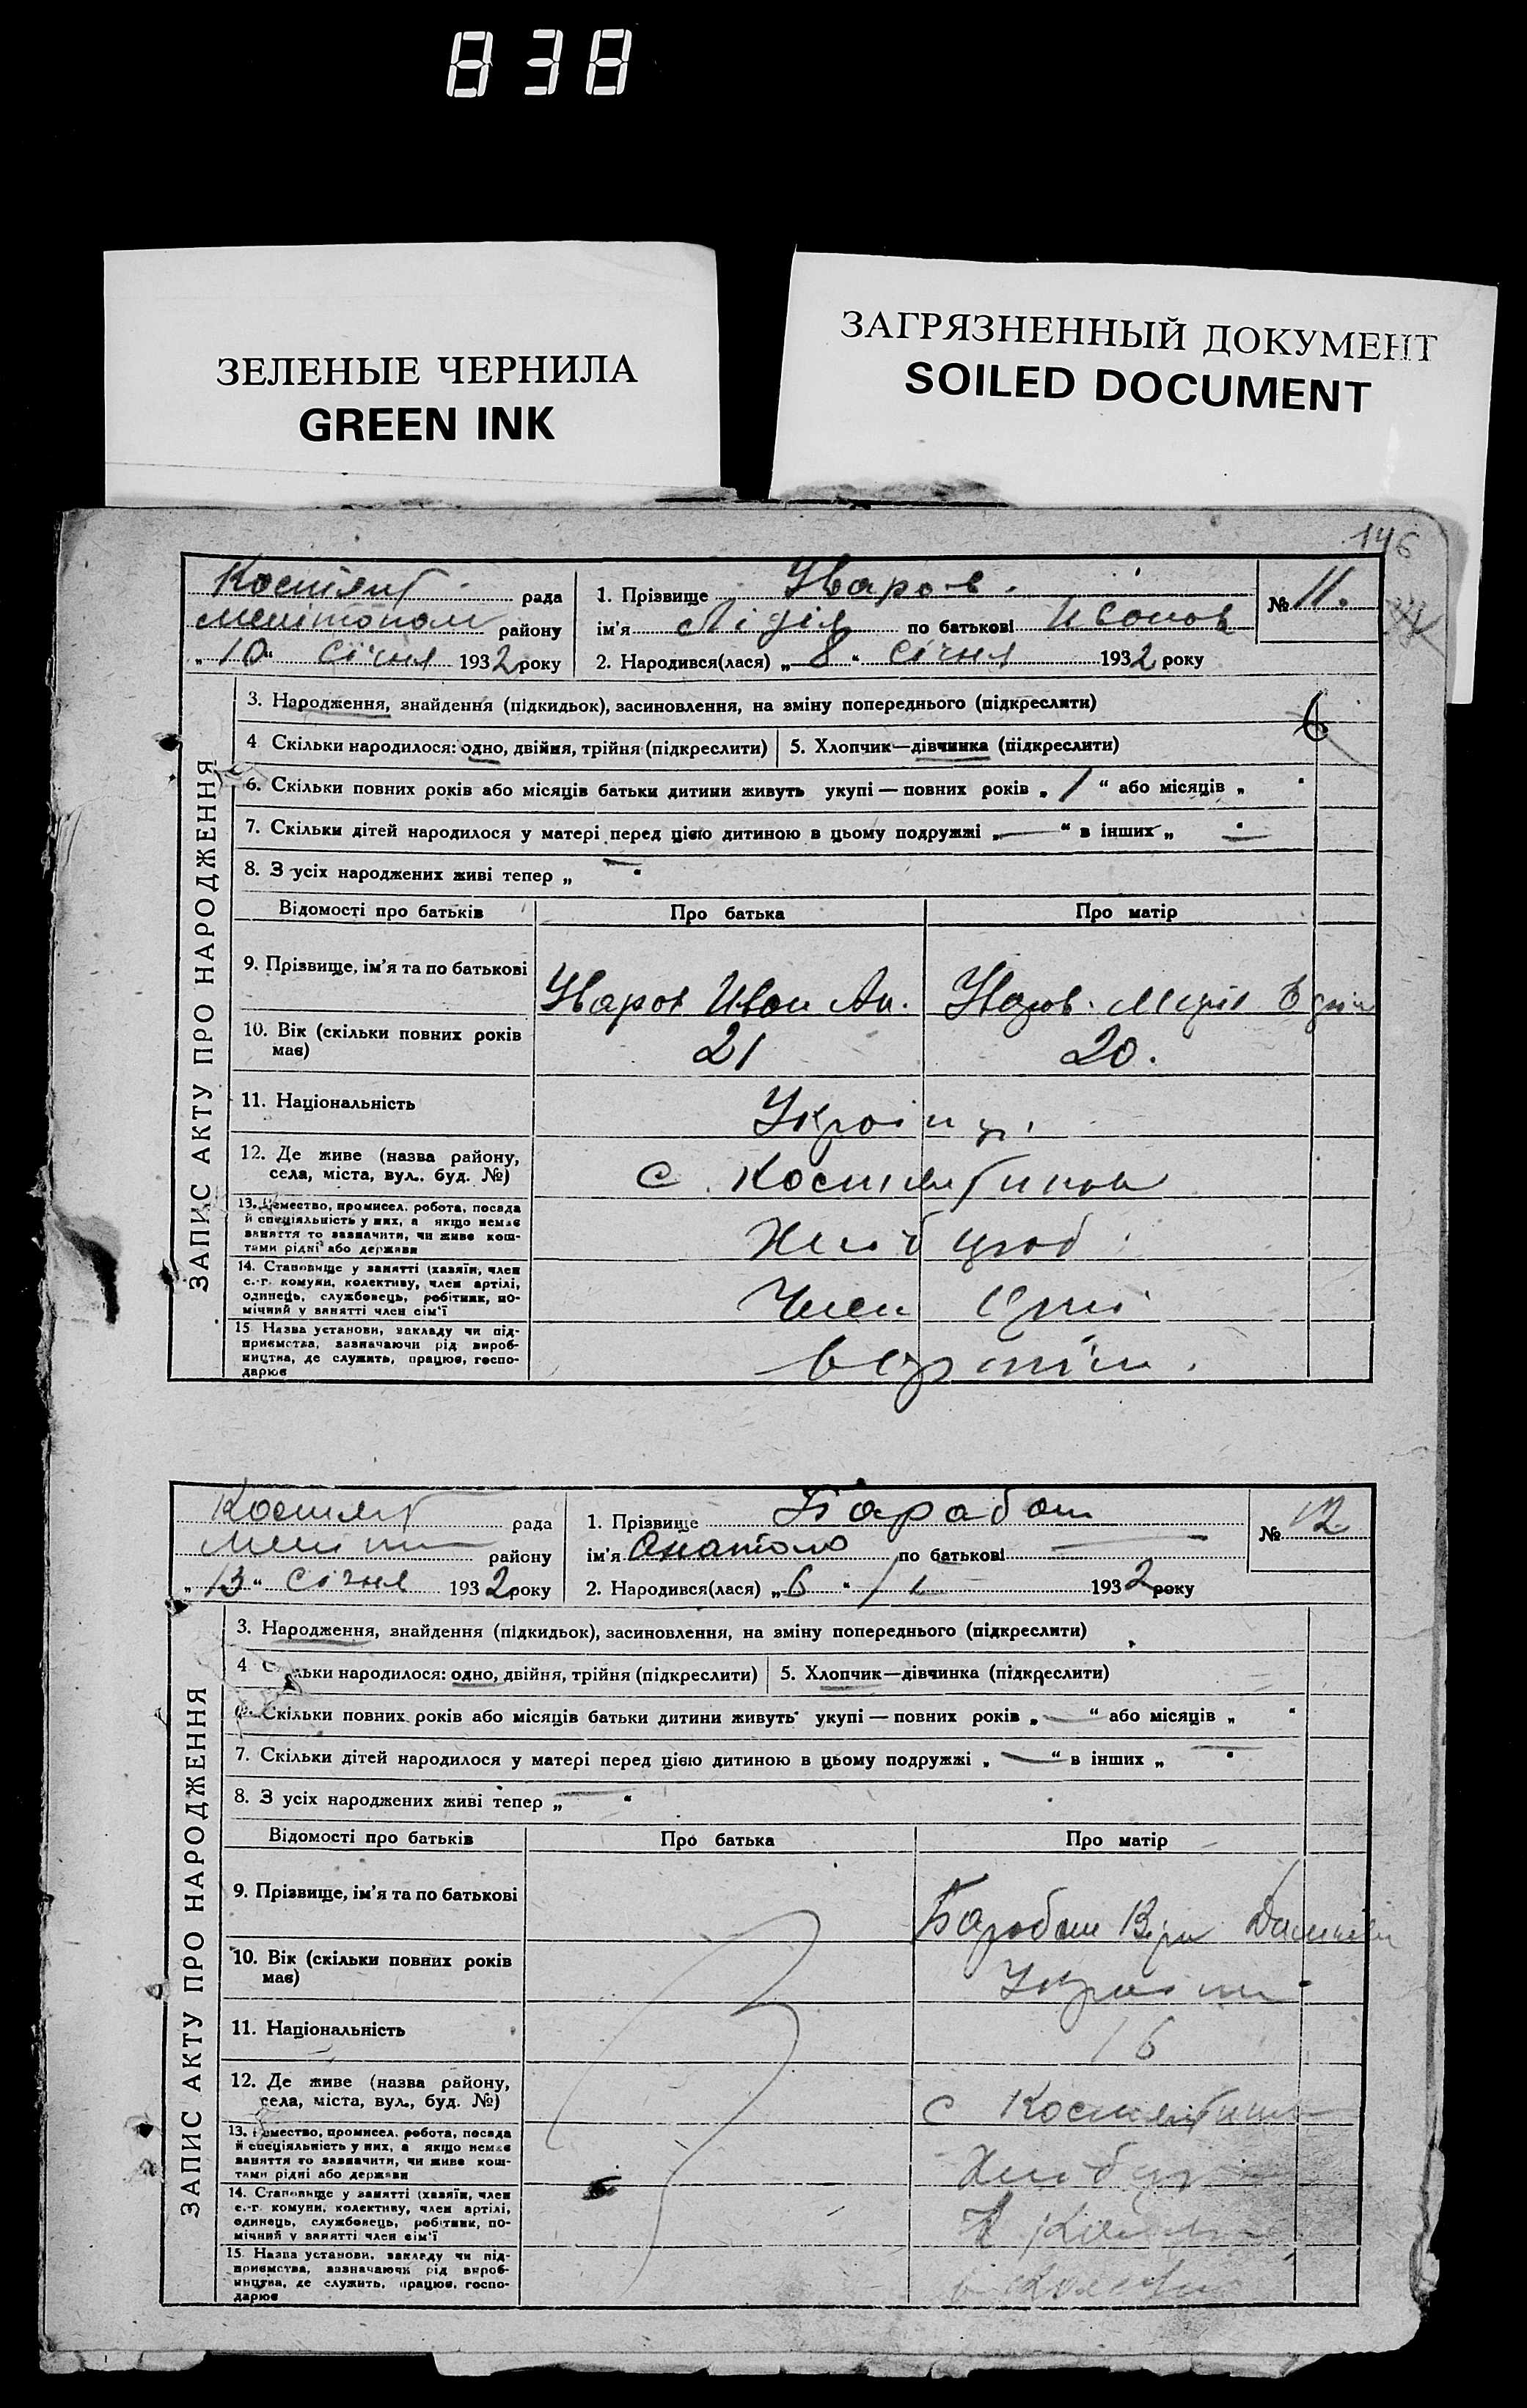 838
ЗЕЛЕНЫЕ ЧЕРНИЛА
GREEN INK
ЗАГРЯЗНЕННЫЙ ДОКУМЕНТ
SOILED DOCUMENT
146
рада
району
„10“ січня 1932 року
1. Прізвище Уваров.
№ 11.
ім'я Лідія по батькові
2. Народився(лася) „8“ Січня 1932 року
ЗАПИС АКТУ ПРО НАРОДЖЕННЯ
3. Народження, знайдення (підкидьок), засиновлення, на зміну попереднього (підкреслити)
6
4 Скільки народилося: одно, двійня, трійня (підкреслити) 5. Хлопчик—дівчинка (підкреслити)
6. Скільки повних років або місяців батьки дитини живуть укупі — повних років „1“ або місяців „ “
7. Скільки дітей народилося у матері перед цією дитиною в цьому подружжі „—“ в інших „—“
8. З усіх народжених живі тепер „—“
Відомості про батьків Про батька Про матір
9. Прізвище, ім'я та по батькові
Уваров Иван Ан.
10. Вік (скільки повних років має)
21 20.
11. Національність
12. Де живе (назва району,
села, міста, вул., буд. №)
13. Ремество, промисел, робота, посада
й спеціяльність у них, а якщо немає
заняття то зазначити, чи живе кош-
тами рідні або держави
14. Становище у занятті (хазяїн, член
с.-г. комуни, колективу, член артілі,
одинець, службовець, робітник, по-
мічний у занятті член сім'ї
Член
15 Назва установи, закладу чи під-
приємства, зазначаючи рід вироб-
ництва, де служить, працює, госпо-
дарює
рада
району
„13“ січня 1932 року
1. Прізвище Барабаш
№ 12
ім'я по батькові —
2. Народився(лася) „6“ / І 1932 року
ЗАПИС АКТУ ПРО НАРОДЖЕННЯ
3. Народження, знайдення (підкидьок), засиновлення, на зміну попереднього (підкреслити)
4 Скільки народилося: одно, двійня, трійня (підкреслити) 5. Хлопчик—дівчинка (підкреслити)
6. Скільки повних років або місяців батьки дитини живуть укупі — повних років „—“ або місяців „ “
7. Скільки дітей народилося у матері перед цією дитиною в цьому подружжі „—“ в інших „—“
8. З усіх народжених живі тепер „—“
Відомості про батьків Про батька Про матір
9. Прізвище, ім'я та по батькові
Барабаш Віра
10. Вік (скільки повних років має)
11. Національність
16
12. Де живе (назва району,
села, міста, вул., буд. №)
13. Ремество, промисел, робота, посада
й спеціяльність у них, а якщо немає
заняття то зазначити, чи живе кош-
тами рідні або держави
14. Становище у занятті (хазяїн, член
с.-г. комуни, колективу, член артілі,
одинець, службовець, робітник, по-
мічний у занятті член сім'ї
15. Назва установи, закладу чи під-
приємства, зазначаючи рід вироб-
ництва, де служить, працює, госпо-
дарює